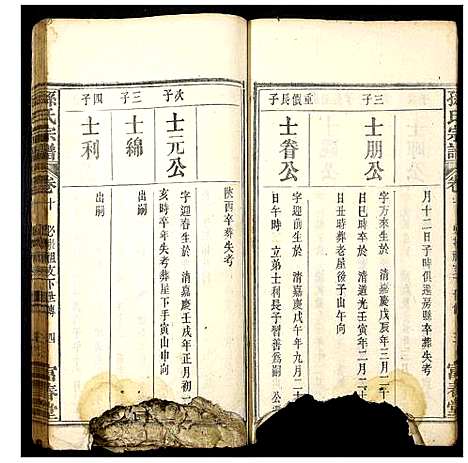 孫氏宗譜
卷十
富春堂
月十二日子時俱遷房縣卒葬失考
三子
士朋公
字方來生於 清嘉慶戊辰年三月二
日巳時卒於 清道光壬寅年二月二
日丑時葬老屋後子山午向
重價長子
士眷公
字迎前生於 清嘉慶
午年九月二
日午時 立弟士利長子習善為嗣 公
陝西卒葬失考
次子
士元公
字迎春生於 清嘉慶壬戌年正月初二
亥時卒年失考葬屋下手寅山申向
三子
士綿
出嗣
四子
士利
出嗣
孫氏宗譜
卷十
四
富春堂